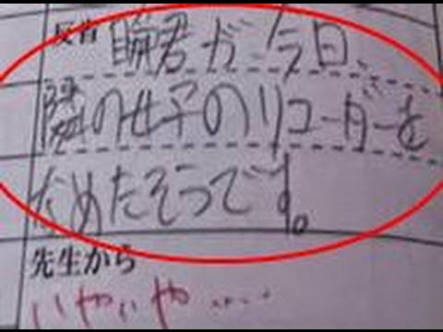 反省
瞬君が今日、
隣の女子のリコーダーを
なめたそうです。
先生から
いやいや……